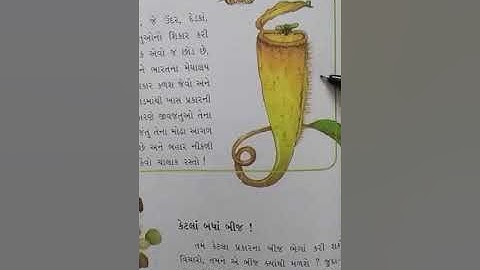 , જે ઉંદર, દેડકાં,
નો શિકાર કરી
એવો જ છોડ છે.
ને ભારતના મેઘાલય
કાર કળશ જેવો અને
ડમાંથી ખાસ પ્રકારની
રણે જીવજંતુઓ તેના
જંતુ તેના મોઢા આગળ
છે અને બહાર નીકળી
કેવો ચાલાક રસ્તો !
કેટલાં બધાં બીજ !
તમે કેટલા પ્રકારના બીજ ભેગાં કરી શક
વિચારો, તમને એ બીજ ક્યાંથી મળશે ? જુદા